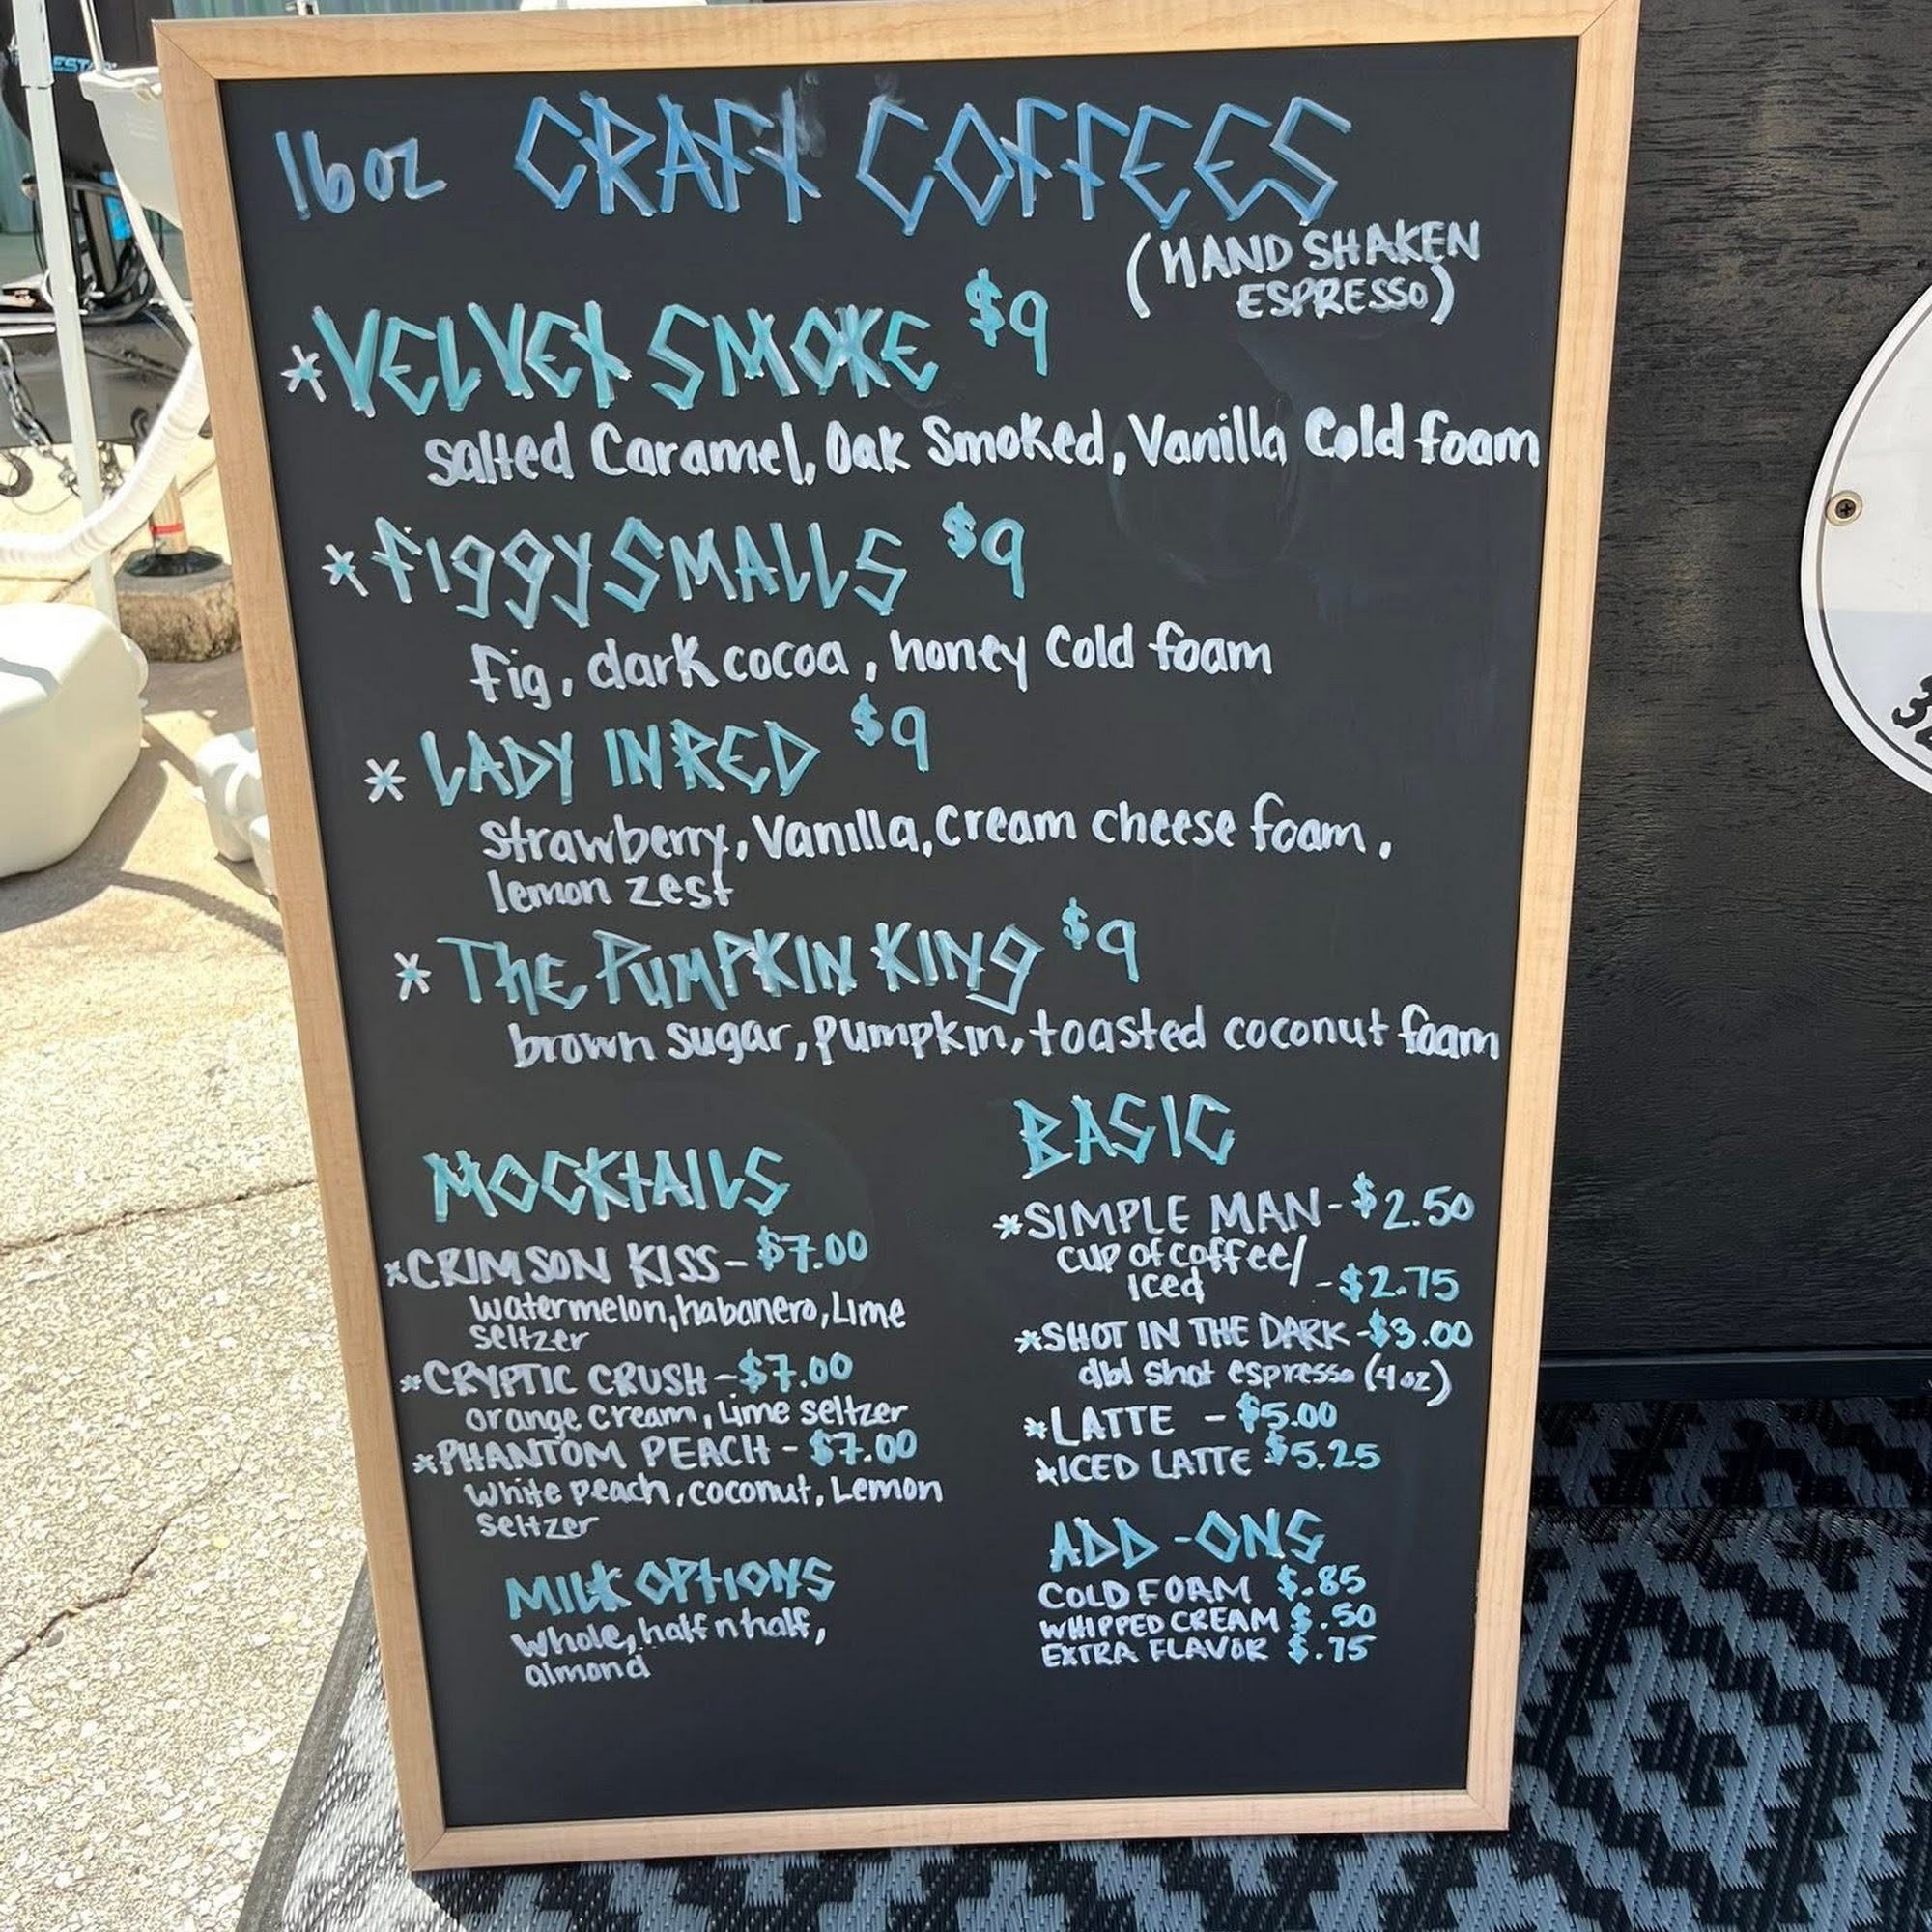 16oz CRAFT COFFEES
(HAND SHAKEN
ESPRESSO)
*VELVET SMOKE $9
salted Caramel, Oak Smoked, Vanilla Cold foam
*FIGGY SMALLS $9
fig, dark cocoa, honey Cold foam
* LADY IN RED $9
Strawberry, Vanilla, Cream cheese foam,
lemon zest
* THE PUMPKIN KING $9
brown sugar, pumpkin, toasted coconut foam
MOCKTAILS
*CRIMSON KISS - $7.00
watermelon, habanero, Lime
seltzer
*CRYPTIC CRUSH - $7.00
orange cream, Lime seltzer
*PHANTOM PEACH - $7.00
White peach, coconut, Lemon
seltzer
MILK OPTIONS
Whole, half n half,
almond
BASIC
*SIMPLE MAN - $2.50
cup of coffee/
Iced - $2.75
*SHOT IN THE DARK - $3.00
dbl shot espresso (4oz)
*LATTE - $5.00
*ICED LATTE $5.25
ADD-ONS
COLD FOAM $.85
WHIPPED CREAM $.50
EXTRA FLAVOR $.75